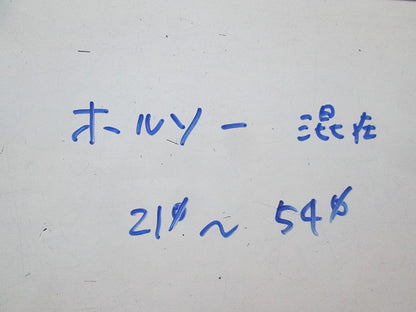 ホルソー 混在
21φ～54φ